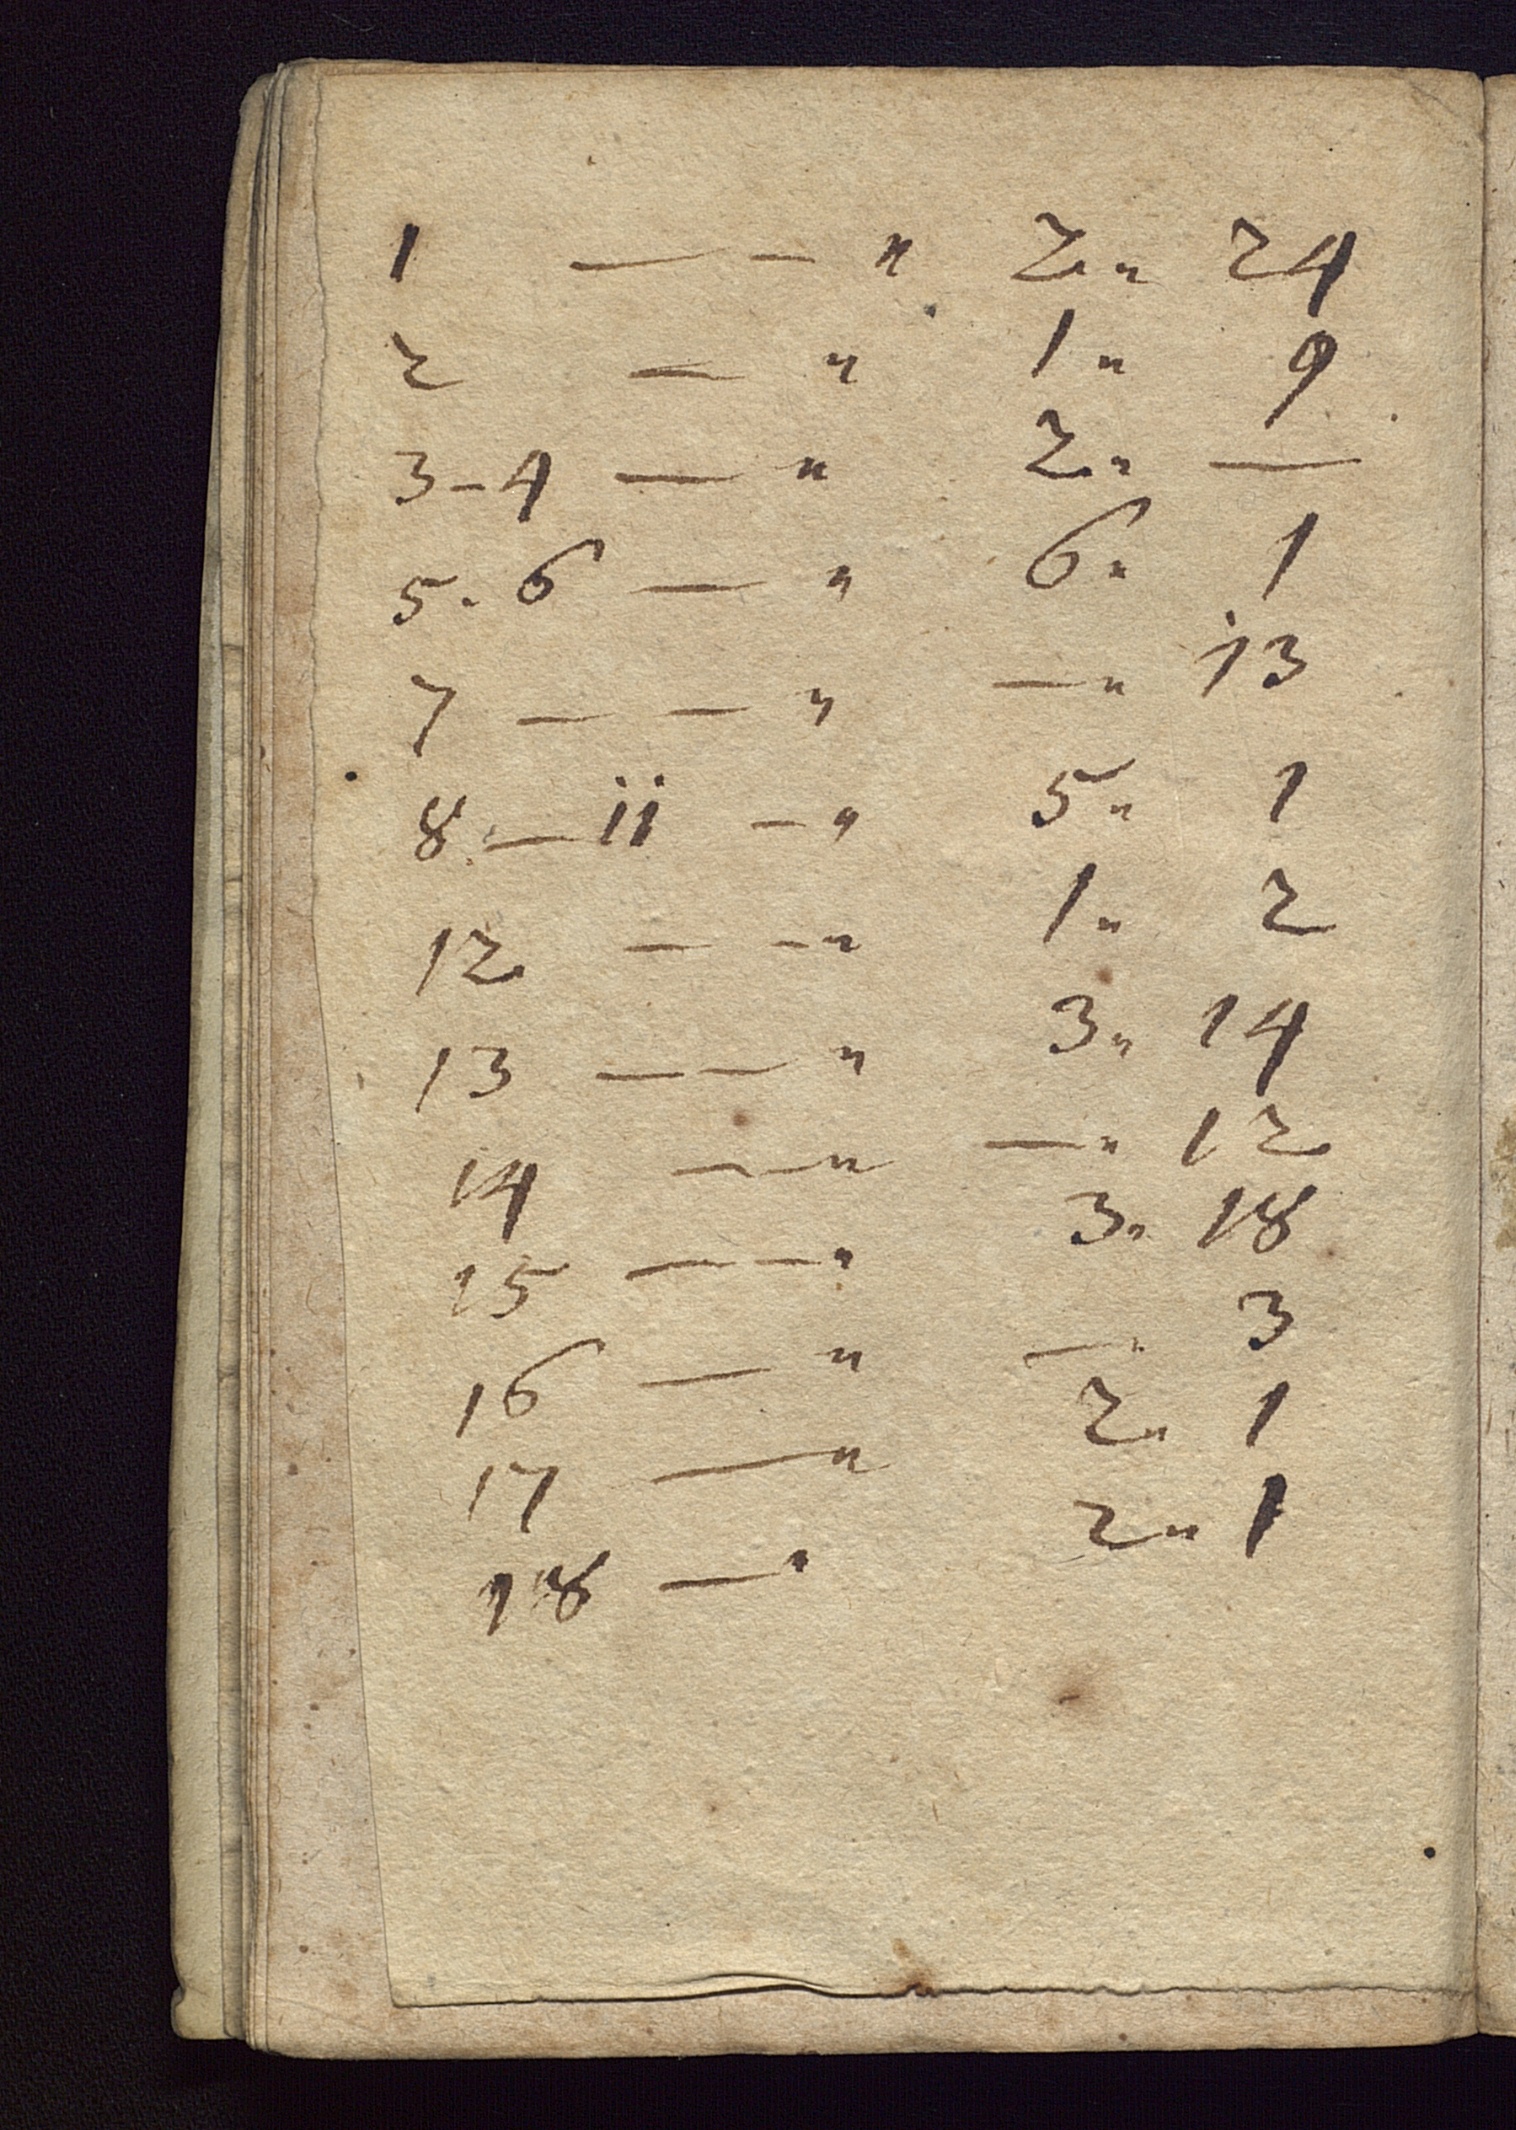 1 — – " 2 " 24
2 — " 1 " 9
3–4 — " 2 " —
5. 6 — " 6 " 1
7 — — " — " 13
8. — 11 – " 5 " 1
12 – – " 1 " 2
13 — — " 3 " 14
14 — – " — " 12
15 — – " 3 " 18
16 — " — " 3
17 — " 2 " 1
18 — " 2 " 1